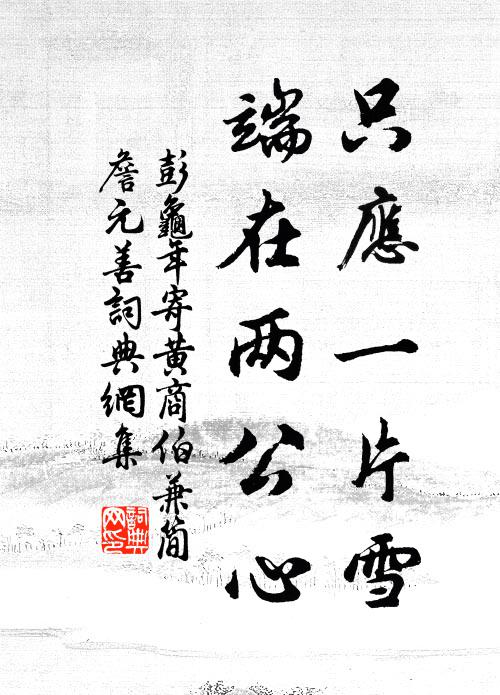 只應一片雪
端在两公心
彭龜年寄黃商伯兼简
詹元善詞典網集
詞典网印